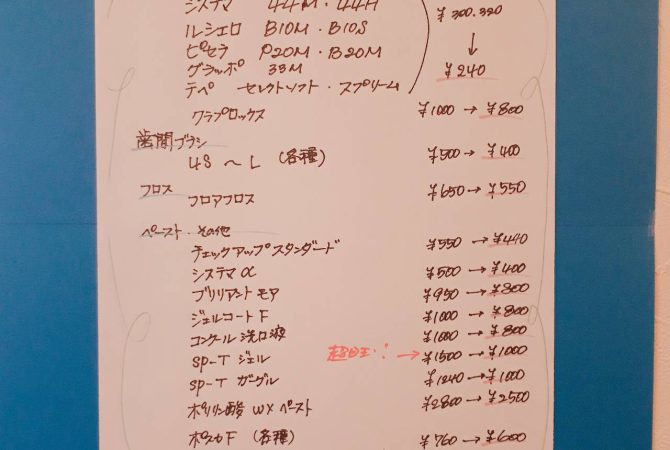 システマ 44M・44H
ルシェロ B10M・B10S ¥300.320
ピセラ P20M・B20M ↓
グラッポ 33M ¥240
テペ セレクトソフト・スプリーム
クラプロックス ¥1000 → ¥800
歯間ブラシ
4S ～ L (各種) ¥500 → ¥400
フロス
フロアフロス ¥650 → ¥550
ペースト・その他
チェックアップスタンダード ¥550 → ¥440
システマ α ¥500 → ¥400
ブリリアントモア ¥950 → ¥800
ジェルコートF ¥1000 → ¥800
コンクール洗口液 ¥1000 → ¥800
SP-T ジェル 超目玉! → ¥1500 → ¥1000
SP-T ガーグル ¥1240 → ¥1000
ポリリン酸 WXペースト ¥2800 → ¥2500
ポスカF (各種) ¥760 → ¥600